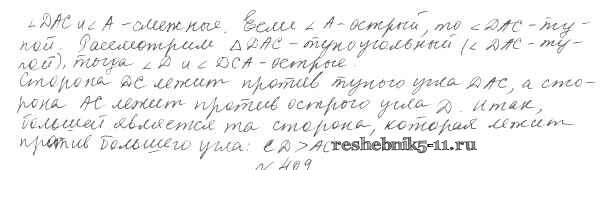 ∠DAC и ∠A - смежные. Если ∠A - острый, то ∠DAC - ту-
пой. Рассмотрим △DAC - тупоугольный (∠DAC - ту-
пой), тогда ∠D и ∠DCA - острые.
Сторона DC лежит против тупого угла DAC, а сто-
рона AC лежит против острого угла D. Итак,
большей является та сторона, которая лежит
против большего угла: CD > AC reshebnik5-11.ru
№ 409